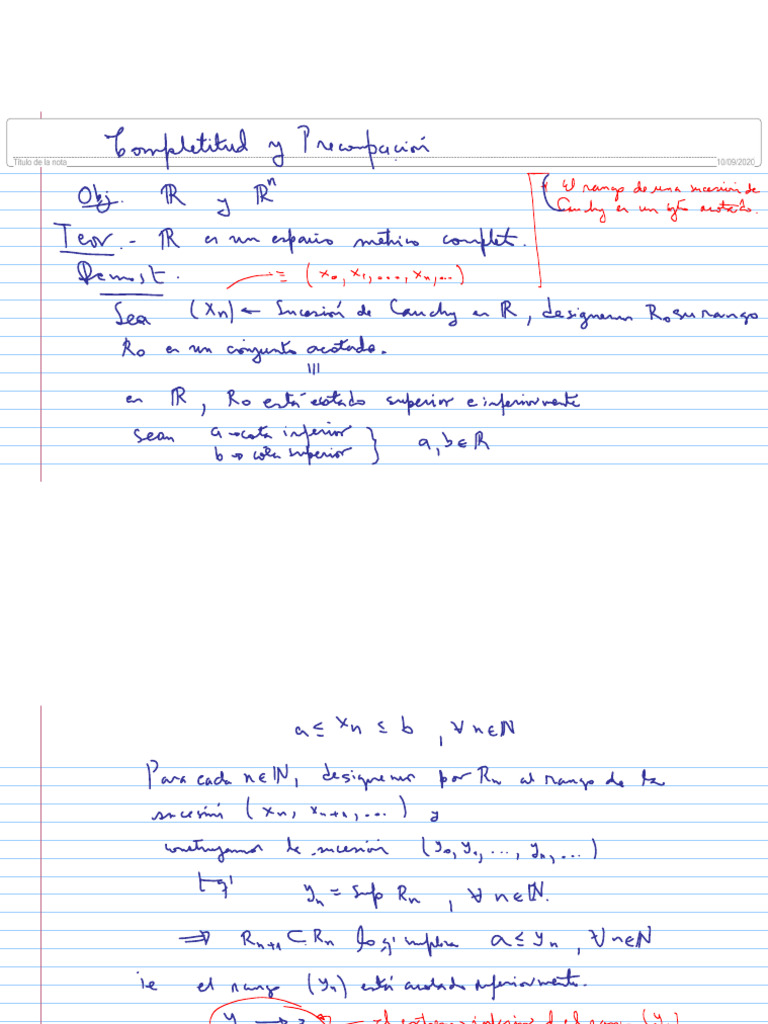 Completitud y Precompación
Título de la nota
10/09/2020
Obj. ℝ y ℝⁿ
El rango de una sucesión de
Cauchy es un cjto acotado.
Teor.- ℝ es un espacio métrico completo.
Demost.
≡ (x₀, x₁, ..., xₙ, ...)
Sea (xₙ) ← Sucesión de Cauchy en ℝ, designemos R₀ su rango
R₀ es un conjunto acotado.
≡
en ℝ, R₀ está acotado superior e inferiormente
sean a → cota inferior
b → cota superior } a, b ∈ ℝ
a ≤ xₙ ≤ b, ∀ n ∈ ℕ
Para cada n ∈ ℕ, designemos por Rₙ al rango de la
sucesión (xₙ, xₙ₊₁, ...) y
construyamos la sucesión (y₀, y₁, ..., yₙ, ...)
tq' yₙ = Sup Rₙ, ∀ n ∈ ℕ.
⇒ Rₙ₊₁ ⊂ Rₙ lo q' implica a ≤ yₙ, ∀ n ∈ ℕ
ie el rango (yₙ) está acotado inferiormente.